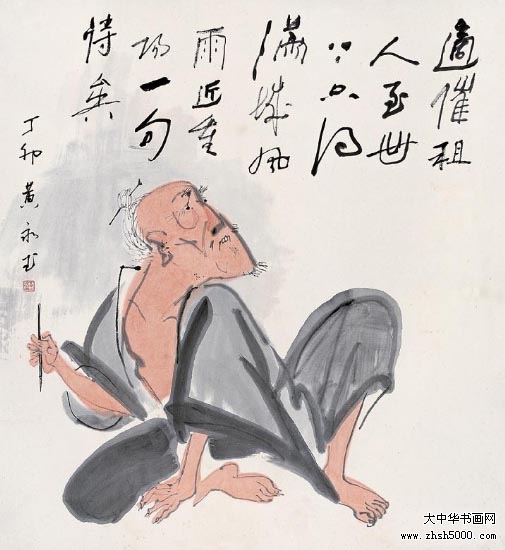 適催租
人至
只得
滿城風
雨近重
陽一句
詩矣
丁卯 黄永玉
大中华书画网
www.zhsh5000.com